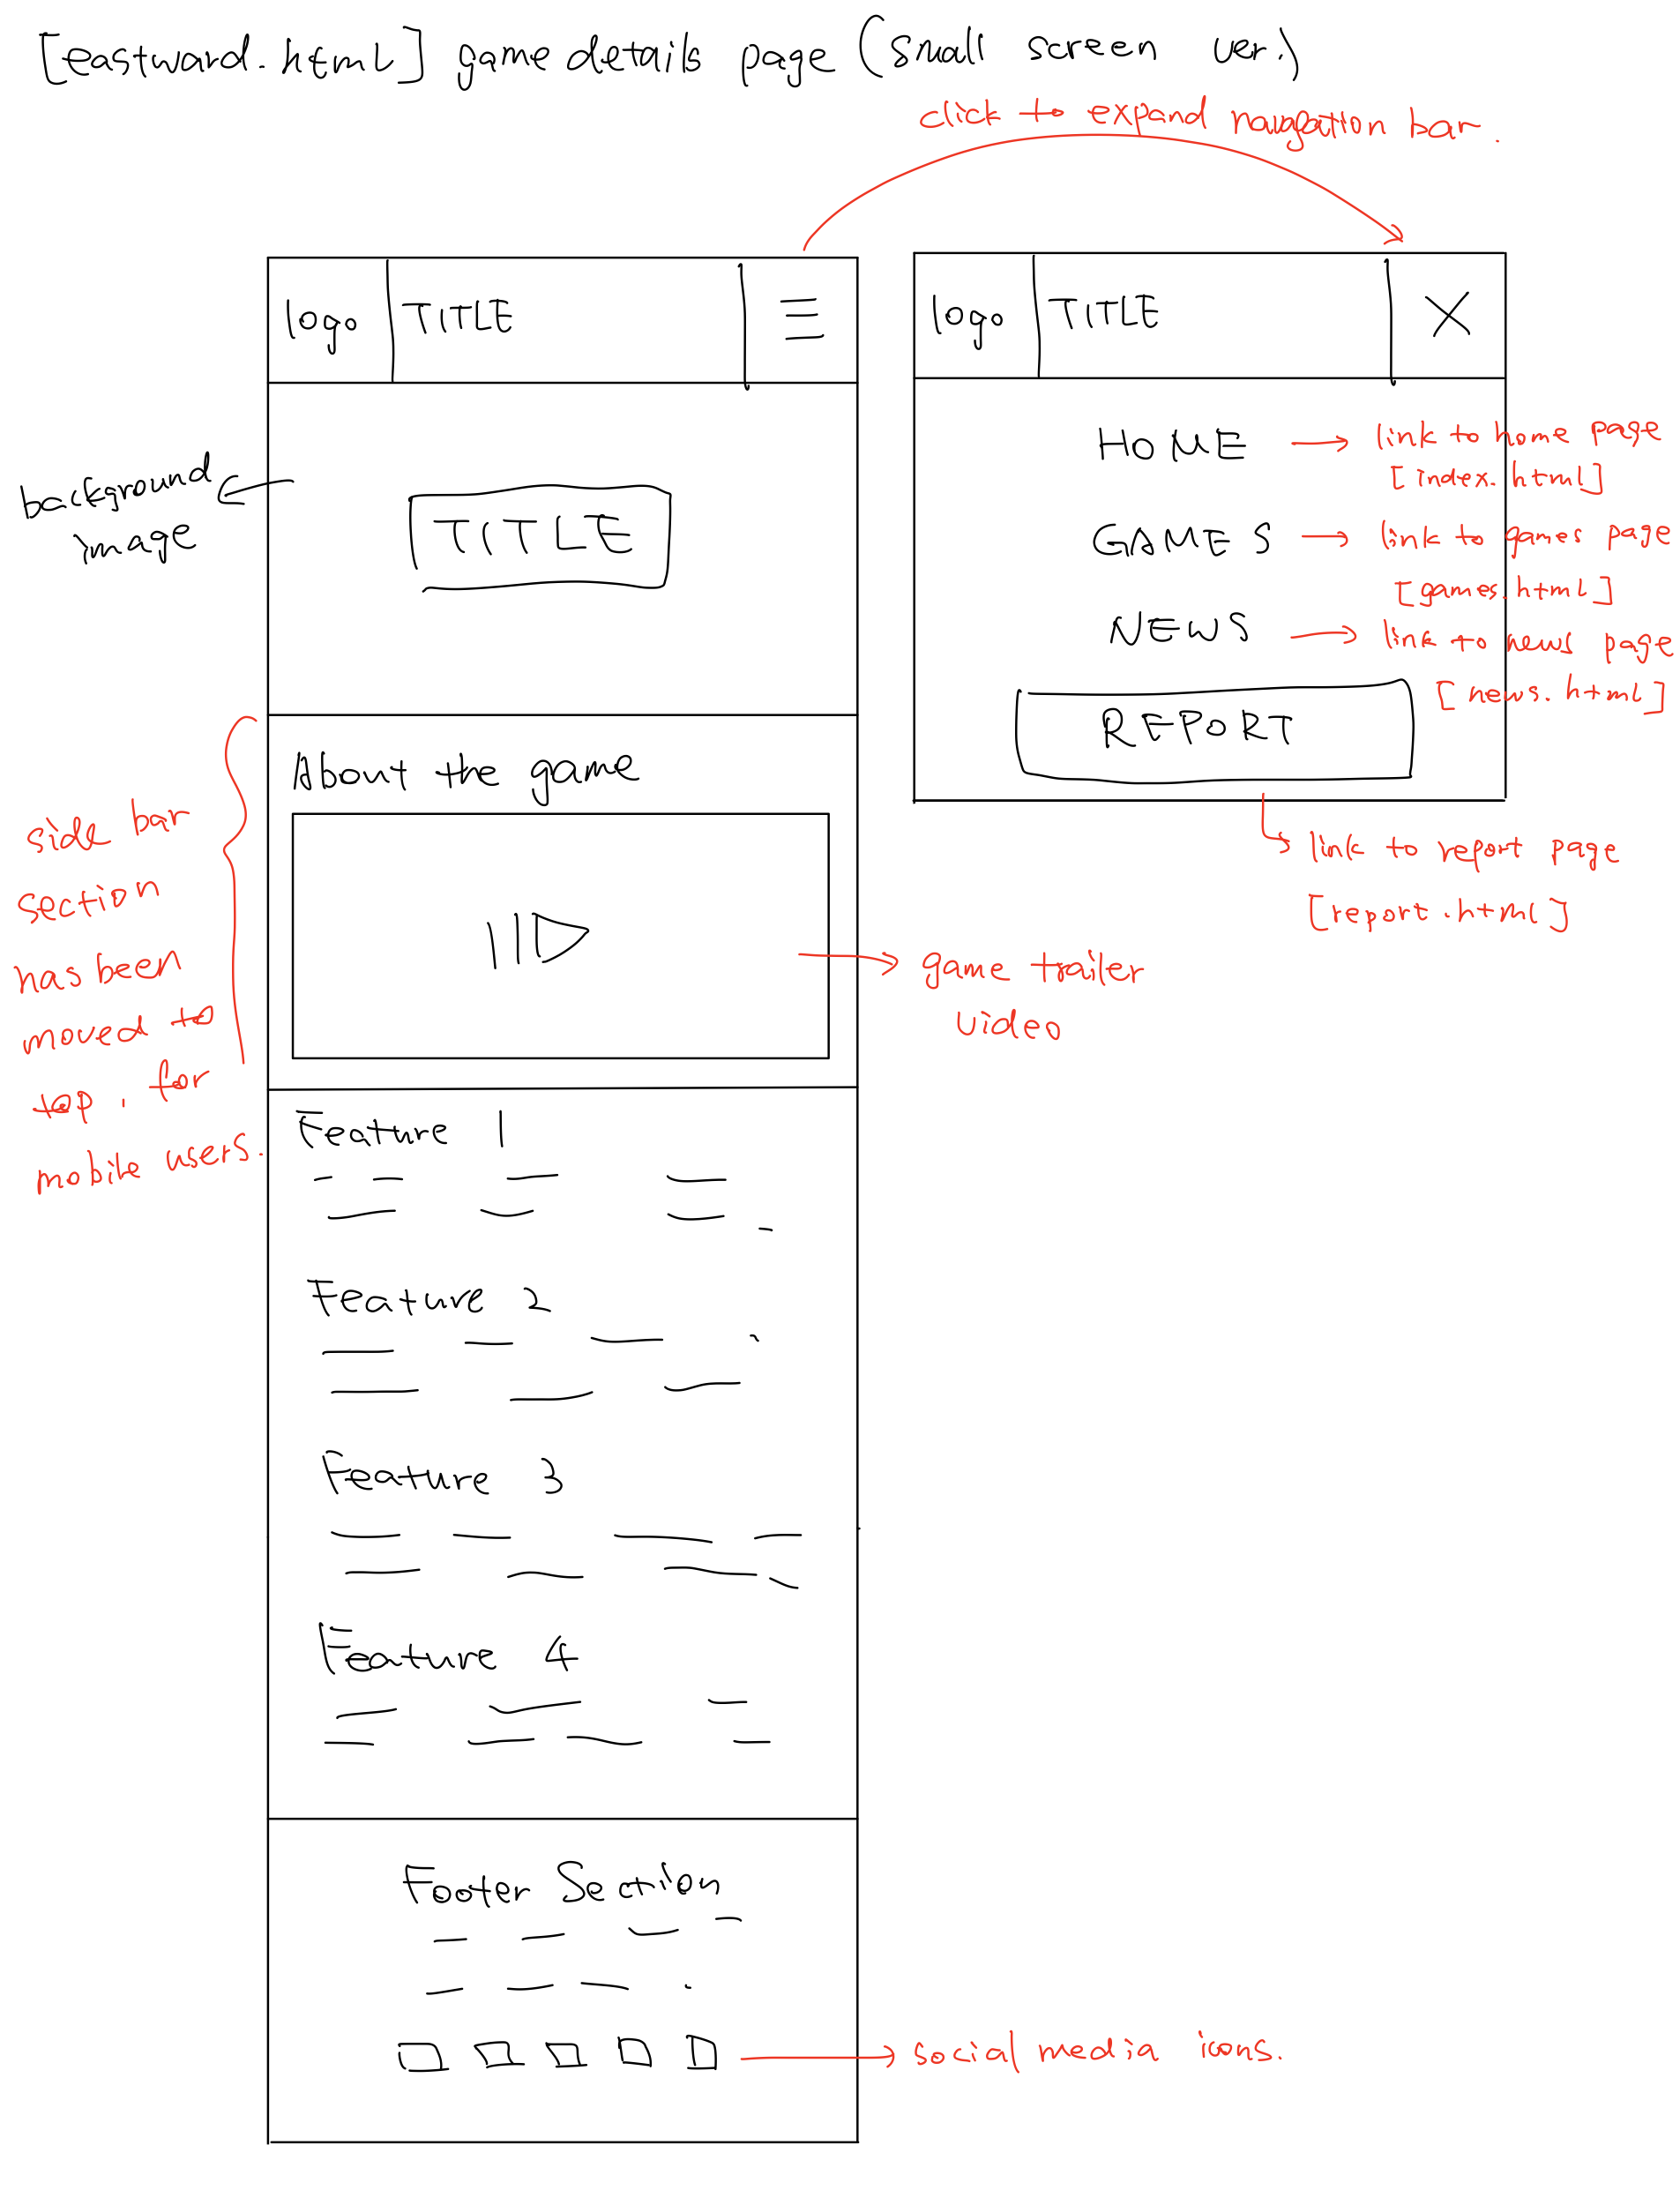 [eastward.html] game details page (small screen ver.)
click to expand navigation bar.
logo TITLE
background
image
TITLE
side bar
section
has been
moved to
top, for
mobile users.
About the game
game trailer
video
Feature 1
Feature 2
Feature 3
Feature 4
Footer Section
social media icons.
logo TITLE X
HOME
link to home page
[index.html]
GAMES
link to games page
[games.html]
NEWS
link to news page
[news.html]
REPORT
link to report page
[report.html]